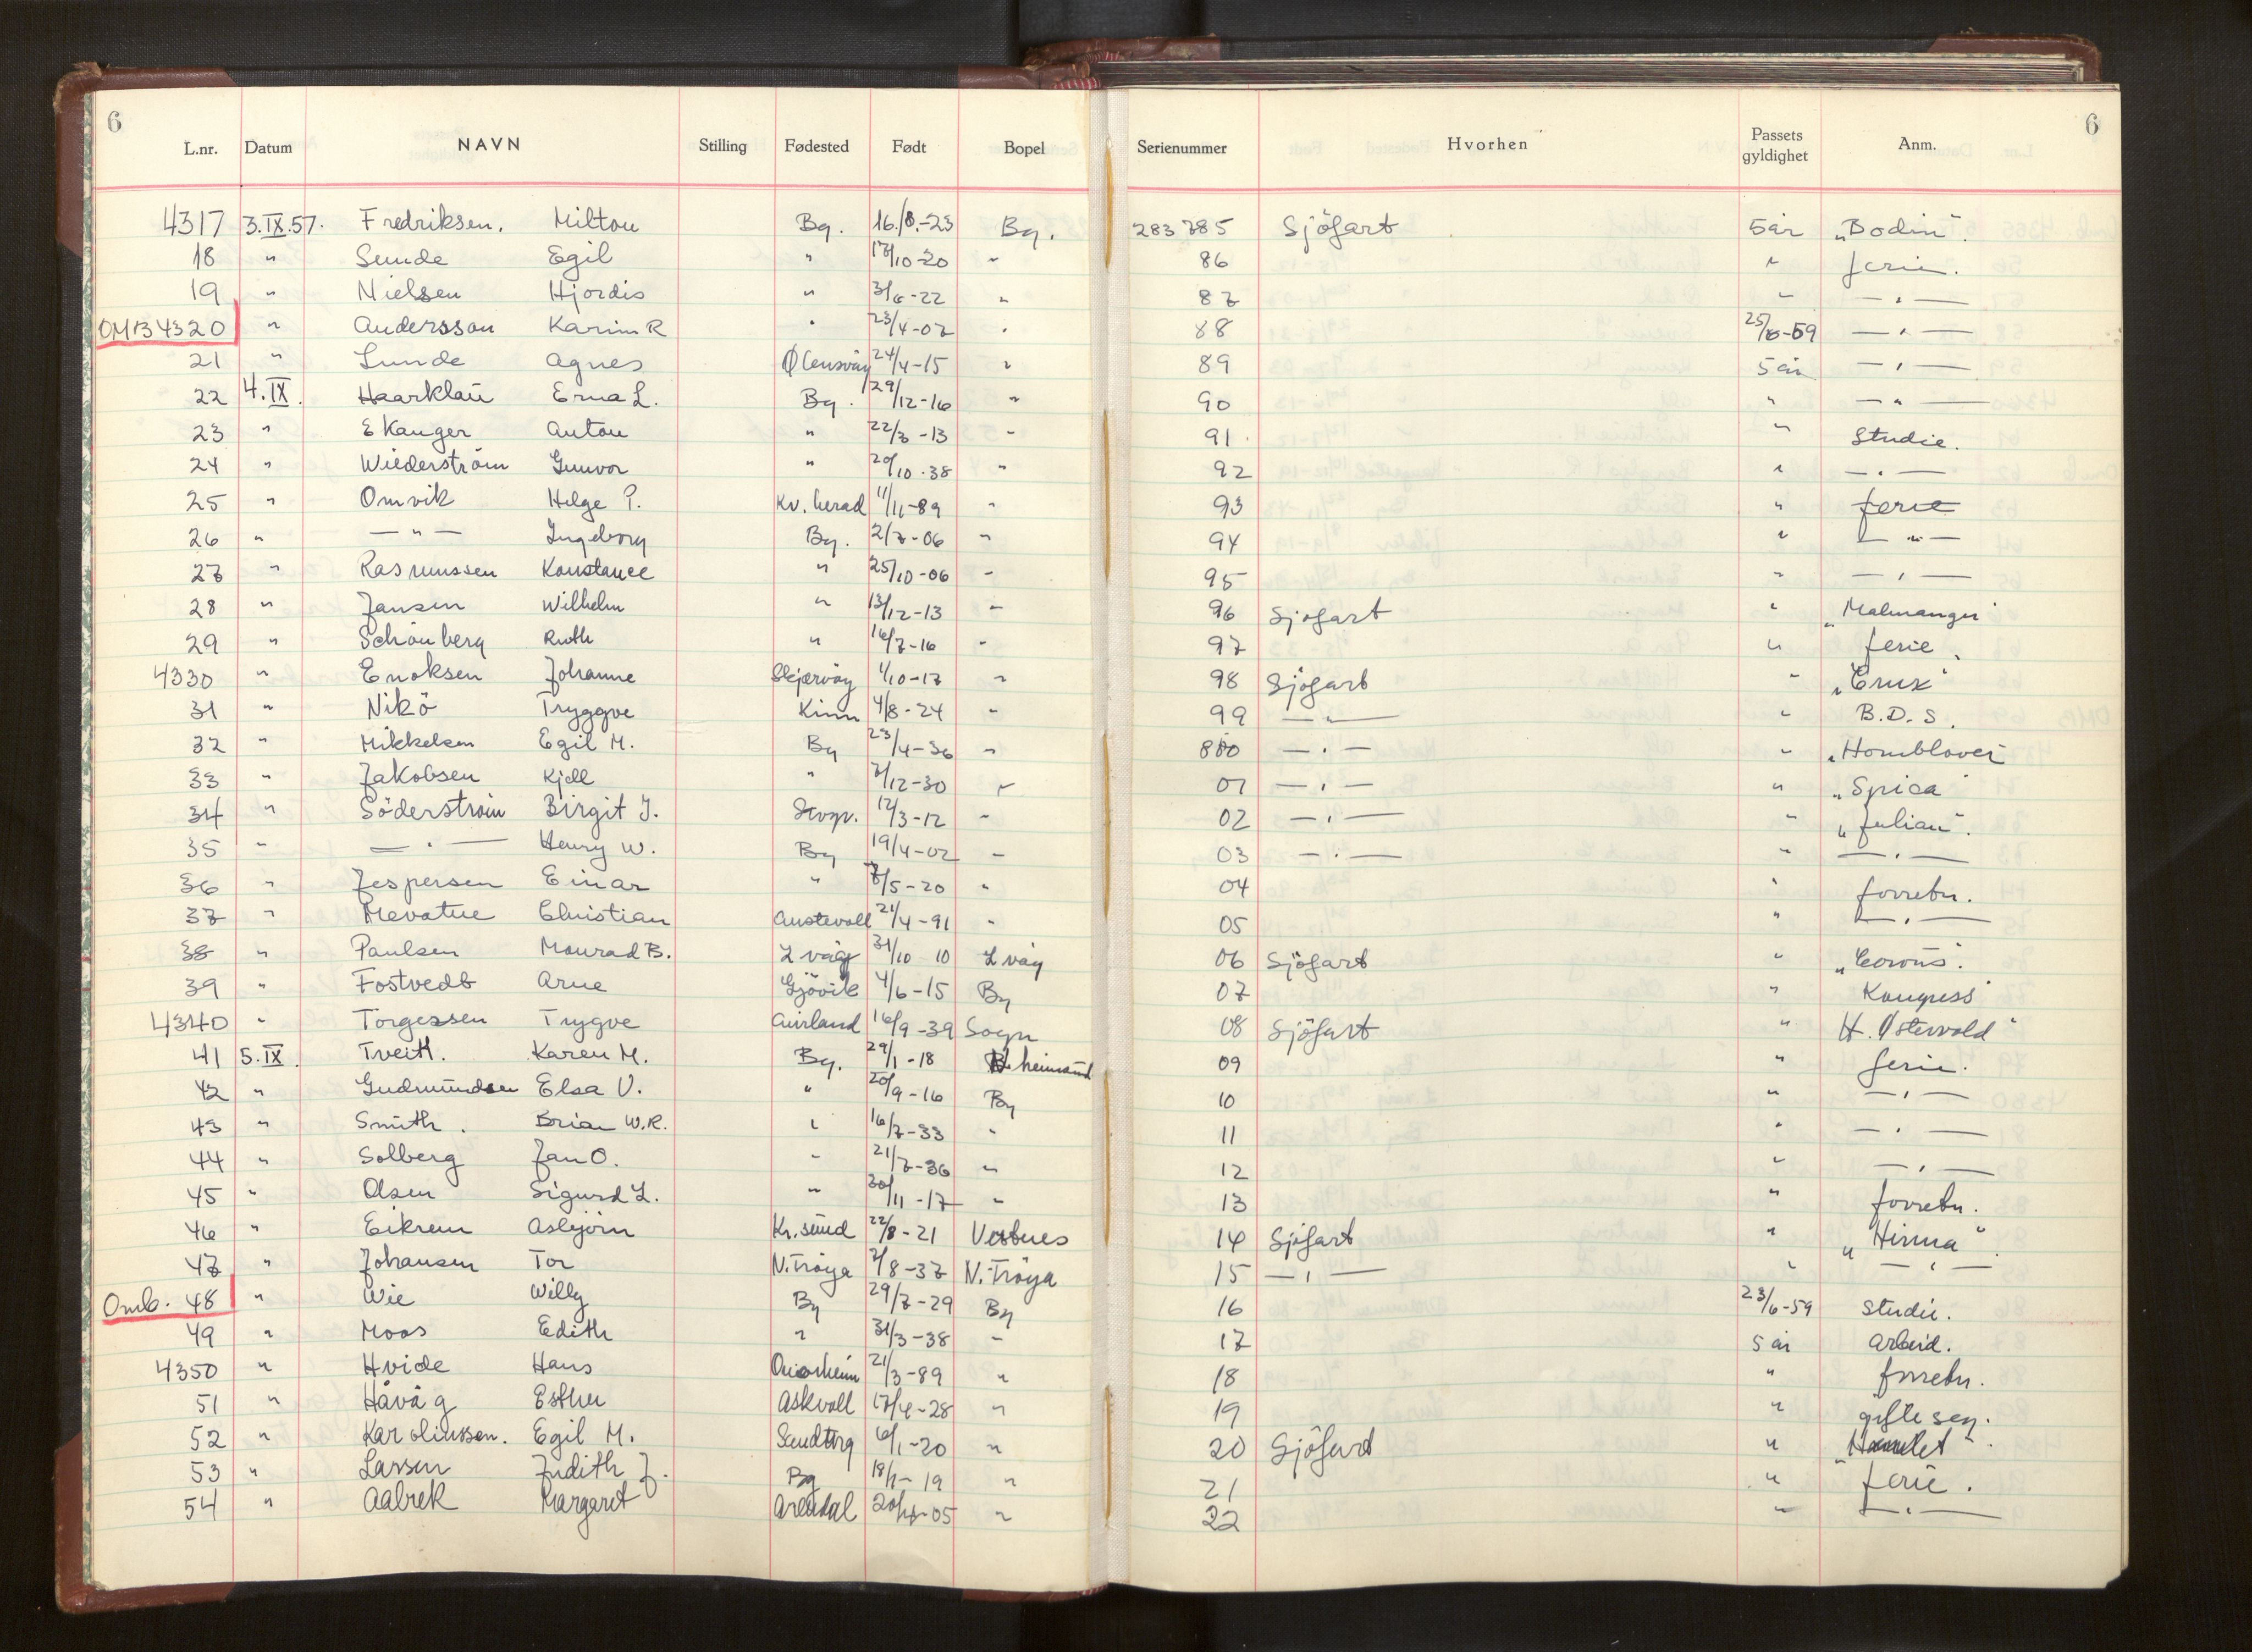 6 6
L.nr. Datum NAVN Stilling Fødested Født Bopel Serienummer Hvorhen Passets gyldighet Anm.
4317 3.IX.57. Fredriksen, Milton Bg. 16./8.-23 Bg. 283785 Sjöfart 5 år „Bodin".
18 " Sunde Egil " 17/10-20 " 86 " ferie.
19 " Nielsen Hjordis " 3/6-22 " 87 " — " —
OMB 4320 " Andersson Karin R " 23/4-07 " 88 25/6-59 — " —
21 " Lunde Agnes Ølensvåg 24/4-15 " 89 5 år — " —
22 4.IX. Haarklau Erna L. Bg. 29/12-16 " 90 " — " —
23 " Ekanger Anton " 22/3-13 " 91 " Studie.
24 " Wiederström Gunvor " 20/10-38 " 92 " — " —
25 " Omvik Helge P. Kv. herad 11/11-89 " 93 " ferie
26 " — " — Ingeborg Bg. 2/7-06 " 94 " — " —
27 " Rasmussen Konstance " 25/10-06 " 95 " — " —
28 " Jansen Wilhelm " 13/12-13 " 96 Sjöfart " „Malmanger"
29 " Schönberg Ruth " 16/7-16 " 97 " ferie.
4330 " Enoksen Johanne Skjervöy 1/10-17 " 98 Sjöfart " „Crux"
31 " Nikö Tryggve Kinn 4/8-24 " 99 — " — " B.D.S.
32 " Mikkelsen Egil M. Bg 23/4-36 " 800 — " — " „Hornblower"
33 " Jakobsen Kjell " 7/12-30 " 01 — " — " „Spica"
34 " Söderström Birgit J. Stvgr. 12/3-12 " 02 — " — " „Julian".
35 " — " — Henry W. Bg 19/4-02 " 03 — " — " — " —
36 " Jespersen Einar " 7/5-20 " 04 " forretn.
37 " Mevatne Christian Austevoll 21/4-91 " 05 " — " —
38 " Paulsen Monrad B. L våg 31/10 10 L våg 06 Sjöfart "
39 " Fostvedt Arne Gjövik 4/6-15 Bg 07 " Kongress
4340 " Torgersen Trygve Aurland 16/9-39 Sogn 08 Sjöfart " H. Östervold"
41 5.IX. Tveit. Karen M. Bg. 29/1-18 N. heimsund 09 " ferie.
42 " Gudmundsen Elsa V. " 20/9-16 Bg 10 " — " —
43 " Smith. Brian W.R. " 16/7-33 " 11 " — " —
44 " Solberg Jan O. " 21/7-36 " 12 " — " —
45 " Olsen Sigurd L. " 30/11-17 " 13 " forretn.
46 " Eikrem Asbjörn Kr. sund 22/8-21 Vestnes 14 Sjöfart " „Hinna".
47 " Johansen Tor N. Fröya 7/8-37 N. Fröya 15 — " — " — " —
Omb. 48 " Wie Willy Bg 29/7-29 Bg 16 23/6-59 Studie.
49 " Moos Edith " 31/3-38 " 17 5 år Arbeid.
4350 " Hvide Hans 21/3-89 " 18 " forretn.
51 " Håvåg Esther Askvoll 17/4-28 " 19 " gifte seg.
52 " Karoliussen. Egil M. Sandtorg 6/1-20 " 20 Sjöfart " „Hamlet".
53 " Larsen Judith J. Bg 18/1-19 " 21 " ferie.
54 " Aabrek Margaret Arendal 05 " 22 " — " —